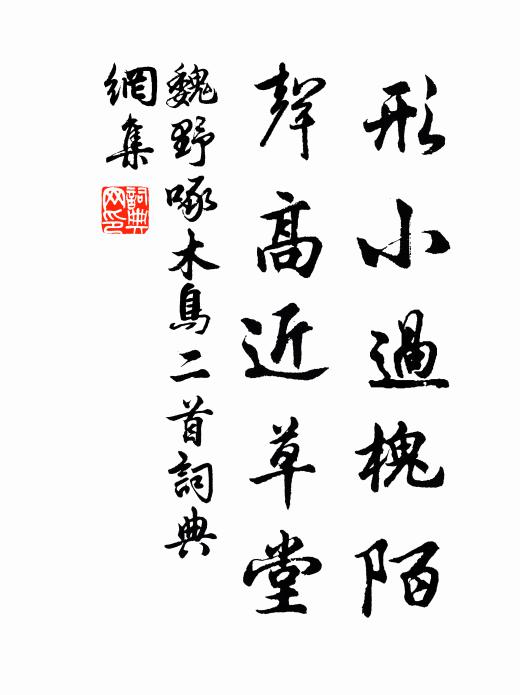 形小過槐陌
聲高近草堂
魏野啄木鳥二首詞典
網集
詞典网印